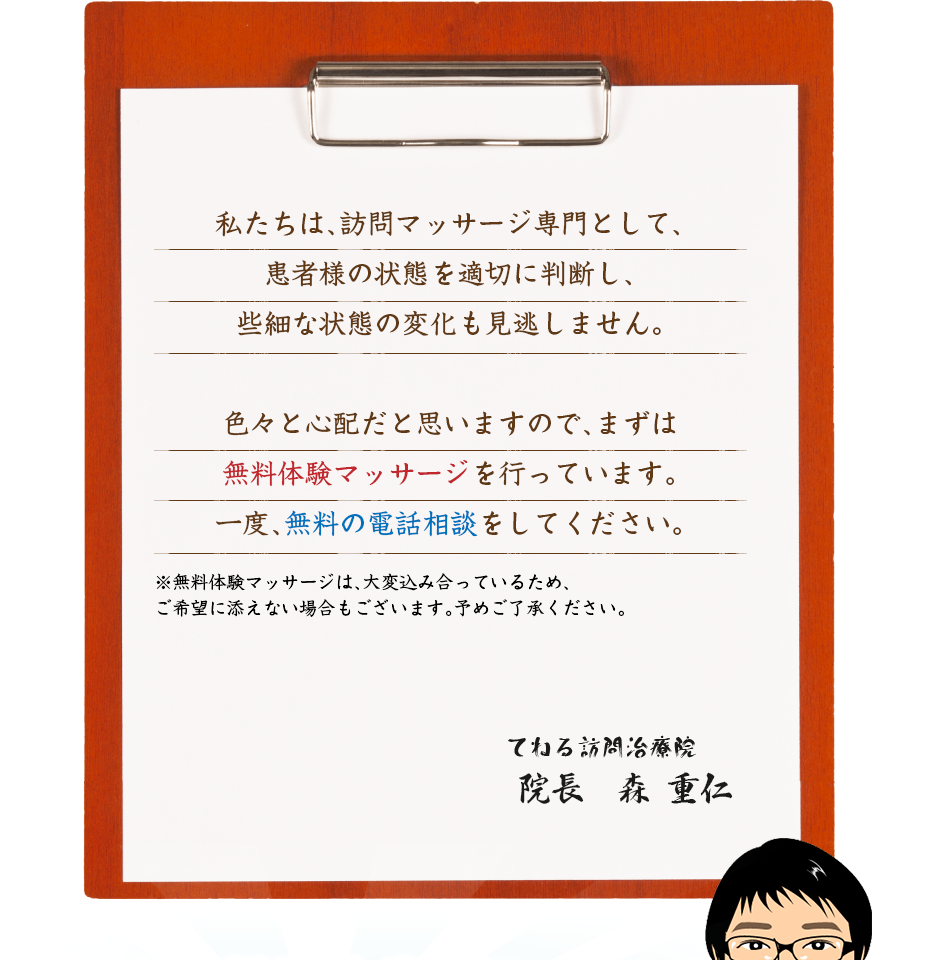 私たちは、訪問マッサージ専門として、
患者様の状態を適切に判断し、
些細な状態の変化も見逃しません。
色々と心配だと思いますので、まずは
無料体験マッサージを行っています。
一度、無料の電話相談をしてください。
※無料体験マッサージは、大変込み合っているため、
ご希望に添えない場合もございます。予めご了承ください。
てねる訪問治療院
院長 森 重仁